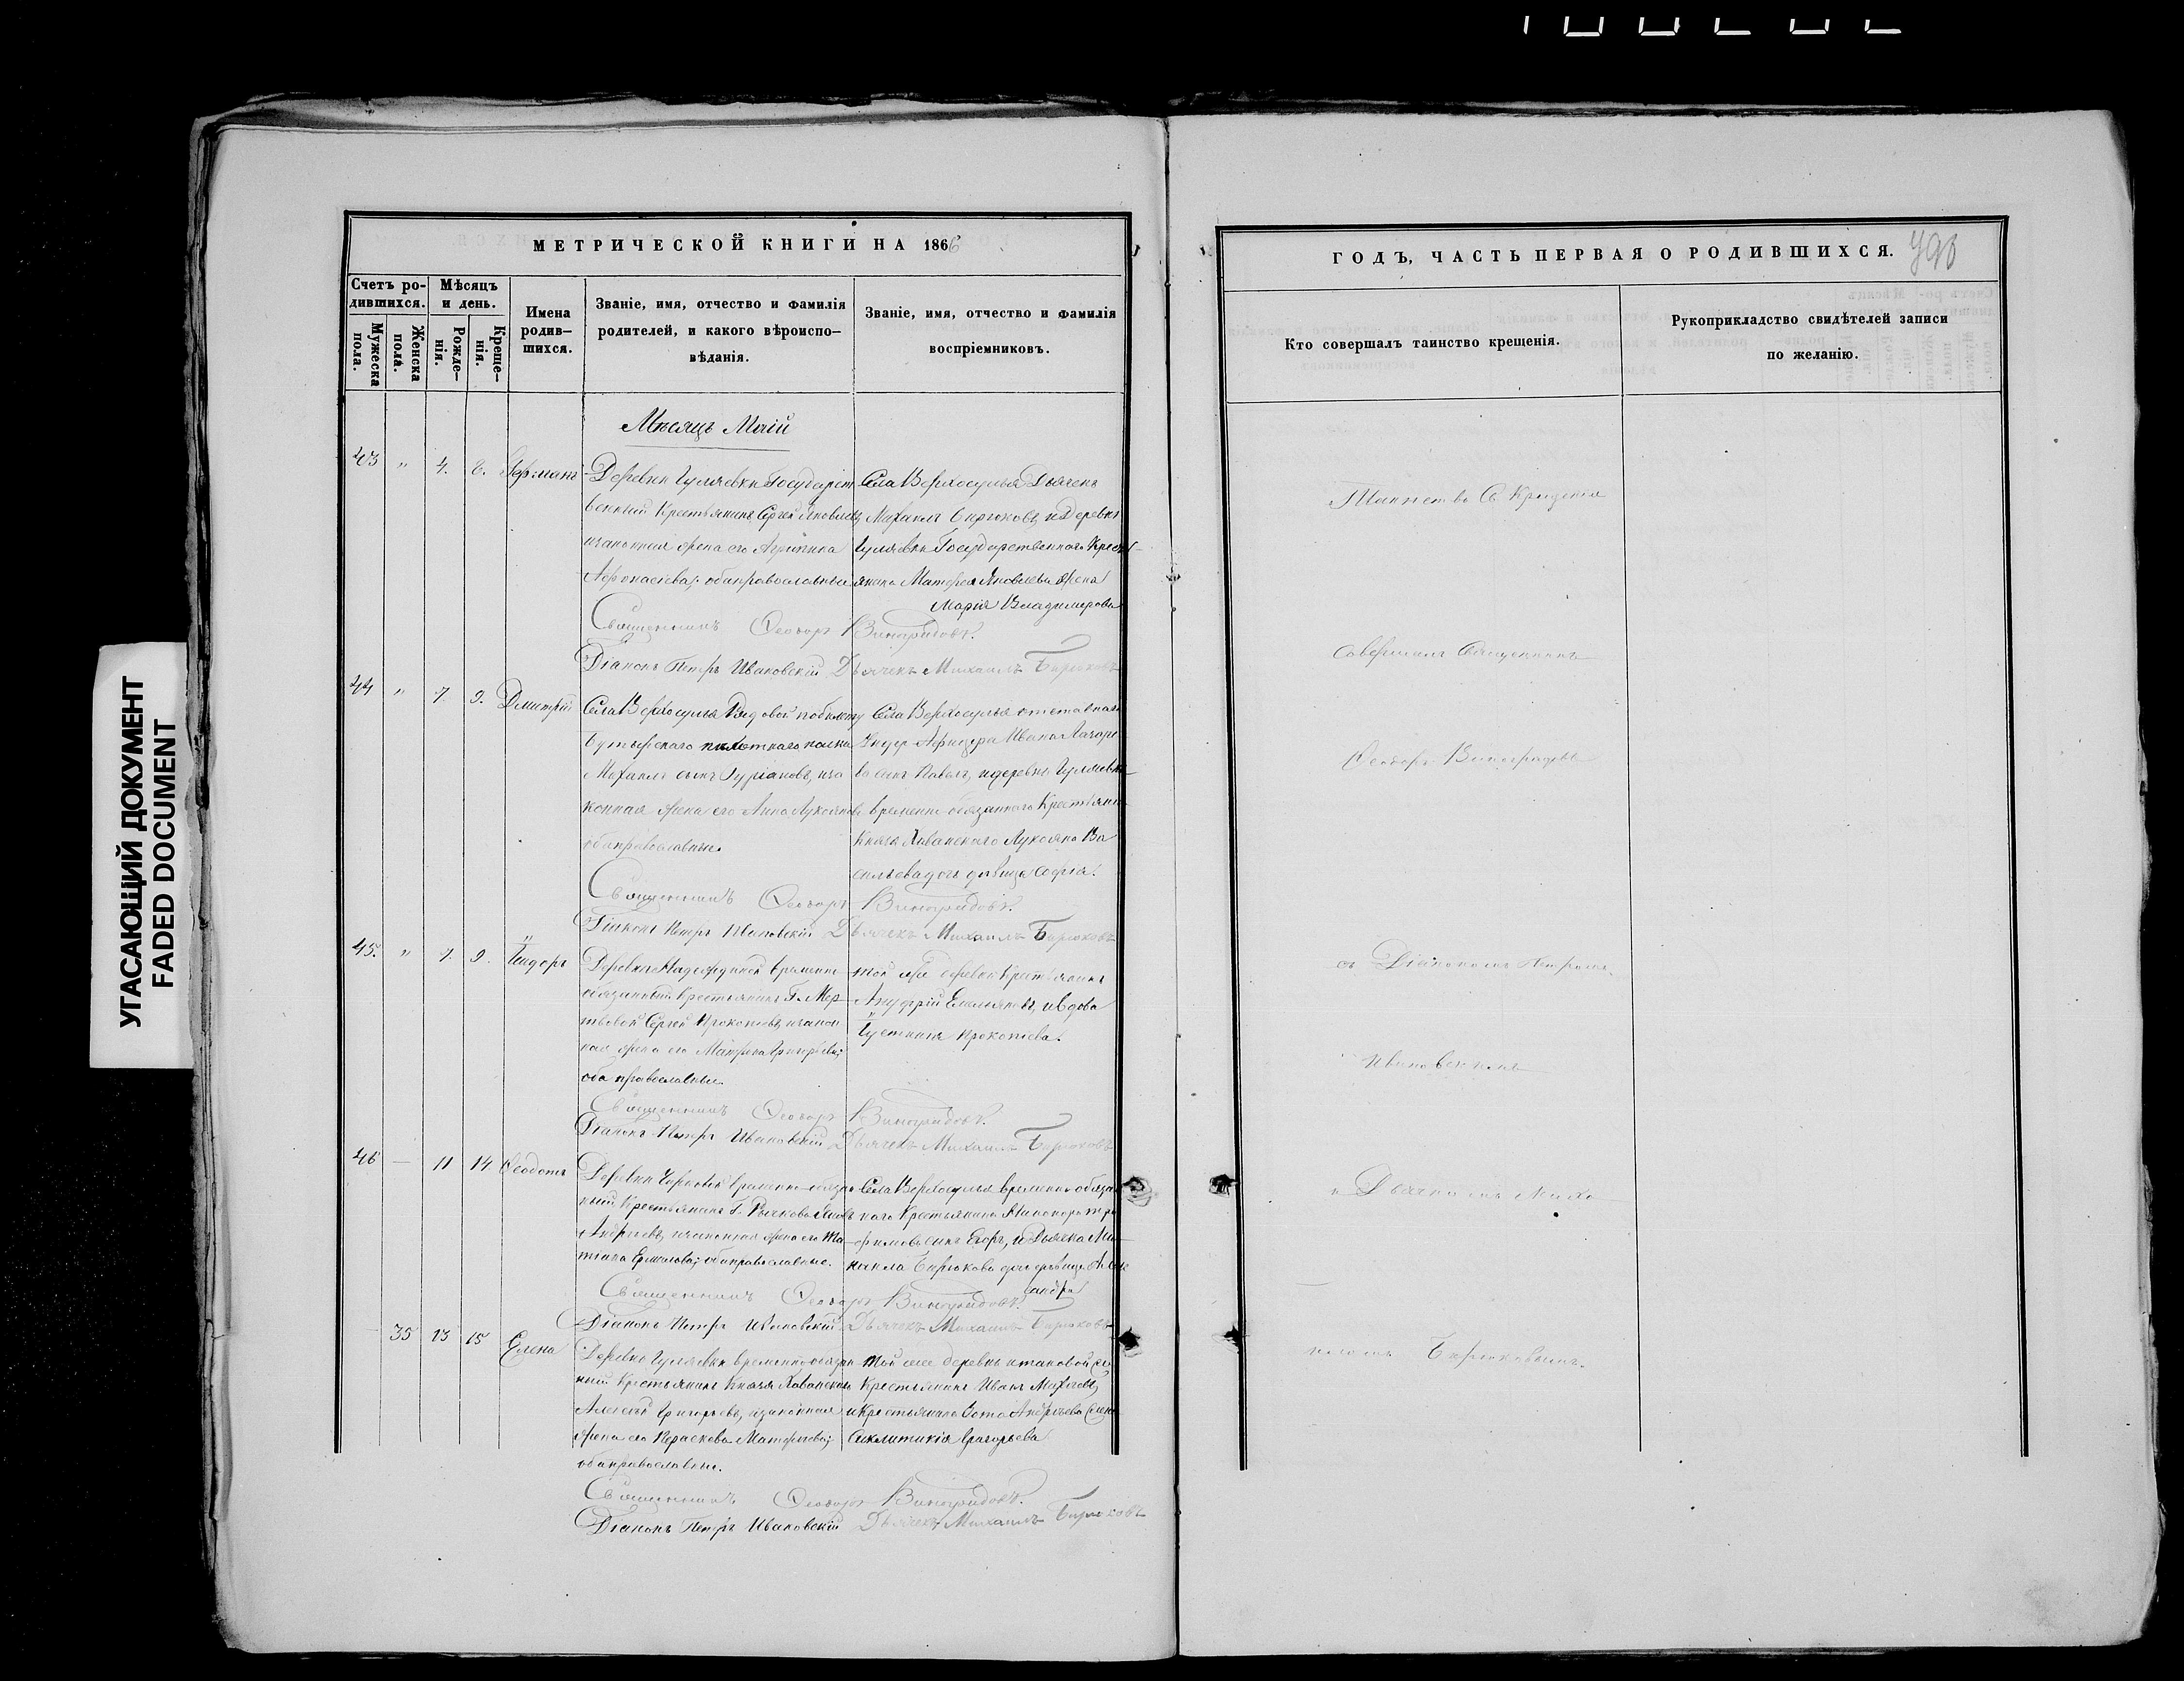 УГАСАЮЩИЙ ДОКУМЕНТ
FADED DOCUMENT
МЕТРИЧЕСКОЙ КНИГИ НА 1866
Счетъ ро-
дившихся.
Мужеска пола.
Женска пола.
Мѣсяцъ
и день.
Рожде-
нія.
Креще-
нія.
Имена
родив-
шихся.
Званіе, имя, отчество и фамилія
родителей, и какого вѣроиспо-
вѣданія.
Званіе, имя, отчество и фамилія
воспріемниковъ.
Мѣсяцъ Маій
43 " 4. 6. Германъ
Деревни Гуляевки Государст
венный Крестьянинъ Сергей Яковлевъ
изаконная жена его Агрипина
Афонасіева; оба православные
Села Верхосулья Дьячекъ
Михаилъ Бирюковъ, и Деревни
Гуляевки Государственнаго Крест-
янина Матфея Яковлева жена
Марія Владимерова
Священникъ Ѳеодоръ Виноградовъ.
Діаконъ Петръ Ивановскій Дьячекъ Михаилъ Бирюковъ
44 " 7 9. Дмитрій
Села Верхосулья Рядовой
Бутырскаго пехотнаго полка
Михаилъ сынъ Гуріановъ, иза
конная жена его Анна Лукоянова
оба православные.
Села Верхосулья отставнаго
Ундер-Афицера Ивана Лазаре
ва сынъ Павелъ, идеревни Гуляевки
временно-обязаннаго Крестьяни
Князя Хованскаго Лукояна Ва
сильева дочь девица Софія.
Священникъ Ѳеодоръ Виноградовъ.
Діаконъ Петръ Ивановскій Дьячекъ Михаилъ Бирюковъ
45. " 7. 9. Исидоръ
Деревни Надеждиной временно
обязанный Крестьянинъ Г. Мер-
твовой Сергей Прокопіевъ, изакон
ная жена его Матрена Григорьева;
оба православные.
той же деревни Крестьянинъ
Ануфрій Емельяновъ, ивдова
Іустинія Прокопіева.
Священникъ Ѳеодоръ Виноградовъ.
Діаконъ Петръ Ивановскій Дьячекъ Михаилъ Бирюковъ
46 — 11 14 Ѳеодотъ
Деревни временно-обязан
ный Крестьянинъ Г. Рычкова
Андреевъ, изаконная жена его Та-
тіана Ермолова; оба православные.
Села Верхосулья временно обязан
наго Крестьянина Никонора Тро
фимова сынъ Егоръ, и Дьячка Ми-
хаила Бирюкова дочь девица Алек
сандра
Священникъ Ѳеодоръ Виноградовъ.
Діаконъ Петръ Ивановскій Дьячекъ Михаилъ Бирюковъ
35 13 15 Елена
Деревни Гуляевки временнообязан
ный Крестьянинъ Князя Хованскаго
Алексѣй Григорьевъ, изаконная
жена его Параскева Матфеева;
оба православные.
той же деревни итаковой же
Крестьянинъ Иванъ Михеевъ,
иКрестьянина Зота Андреева жена
Синклитикія Григорьева
Священникъ Ѳеодоръ Виноградовъ.
Діаконъ Петръ Ивановскій Дьячекъ Михаилъ Бирюковъ
ГОДЪ, ЧАСТЬ ПЕРВАЯ О РОДИВШИХСЯ.
Кто совершалъ таинство крещенія.
Рукоприкладство свидѣтелей записи
по желанію.
Таинство Св Крещенія
Совершалъ Священникъ
Ѳеодоръ Виноградовъ
съ Діакономъ Петромъ
Ивановскимъ
и Дьячкомъ Миха
иломъ Бирюковымъ.